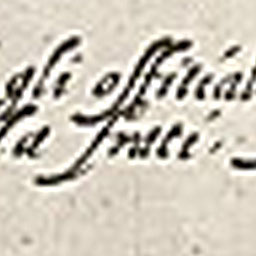 gli offitial
la frate.